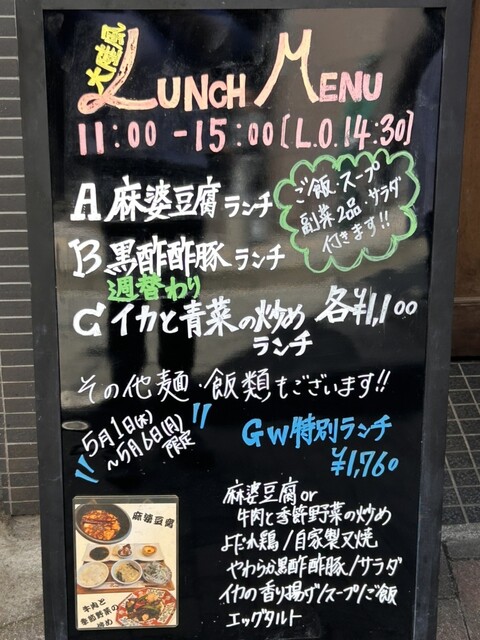 大陸風
LUNCH MENU
11:00 -15:00 [L.O.14:30]
ご飯・スープ
副菜2品・サラダ
付きます!!
A 麻婆豆腐 ランチ
B 黒酢酢豚 ランチ
週替わり
C イカと青菜の炒め 各¥1,100
ランチ
その他麺・飯類もございます!!
5月1日(木)
~5月6日(月)
限定
GW特別ランチ
¥1,760
麻婆豆腐 or
牛肉と季節野菜の炒め
よだれ鶏/自家製叉焼
やわらか黒酢酢豚/サラダ
イカの香り揚げ/スープ/ご飯
エッグタルト
麻婆豆腐
牛肉と
季節野菜の
炒め